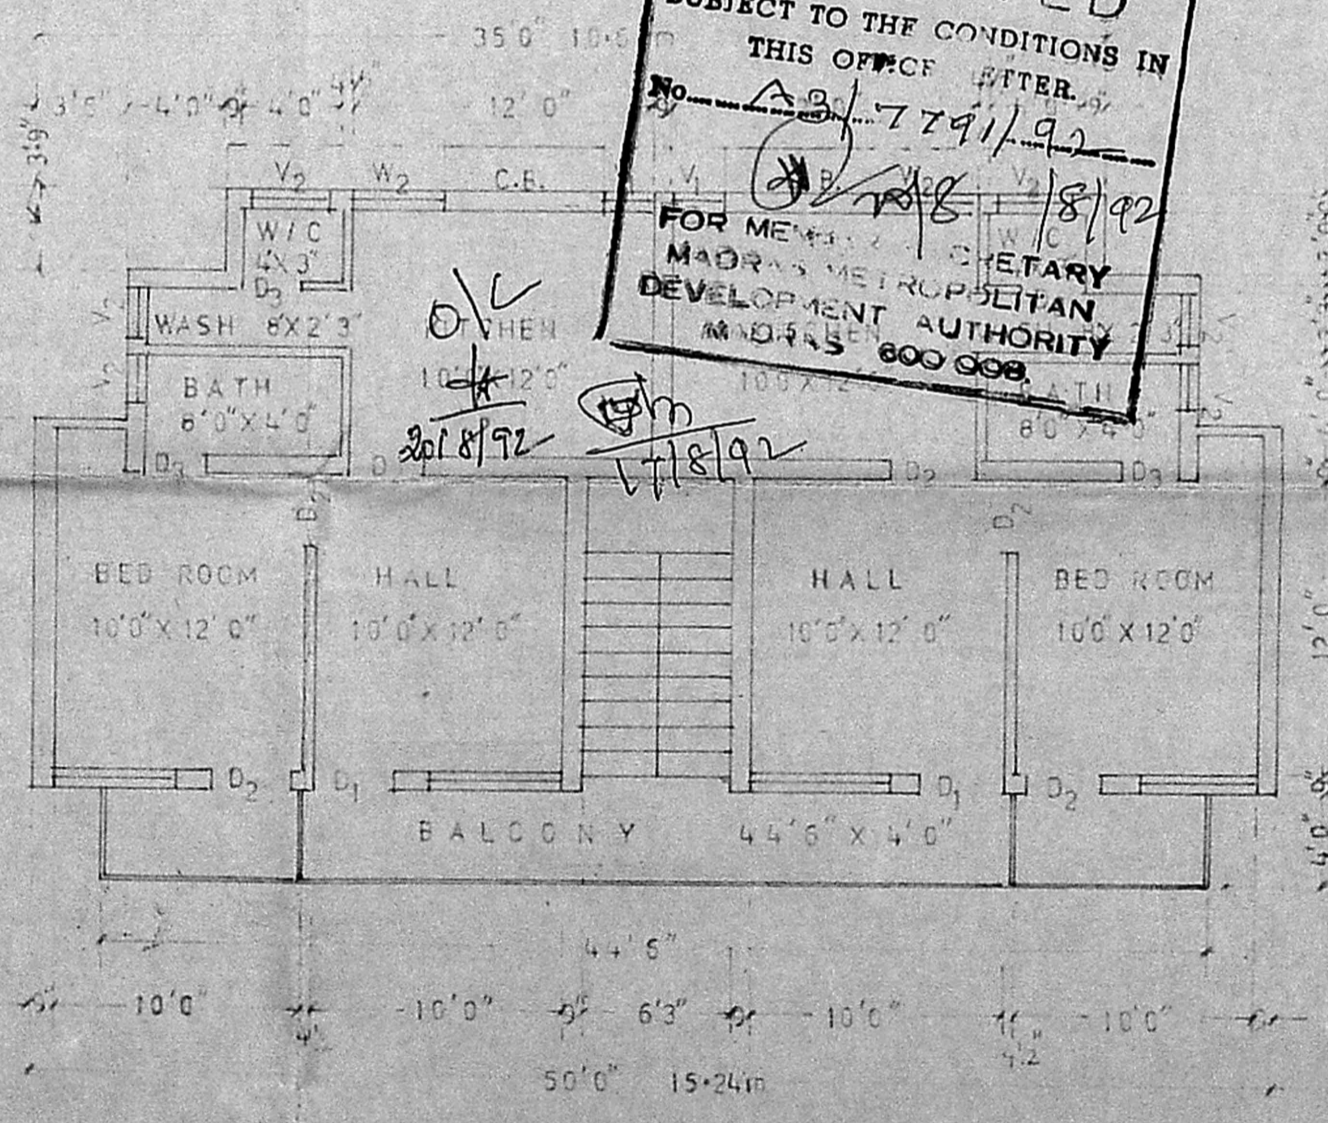 SUBJECT TO THE CONDITIONS IN
THIS OFFICE LETTER.
No. A3/7791/92
/8/92
FOR MEMBER SECRETARY
MADRAS METROPOLITAN
DEVELOPMENT AUTHORITY
MADRAS 600 008.
35'0" 10.6 m
3'6" 4'0" 9" 4'0" 4½" 12'0"
3'9"
V2 W2 C.B. V1 V2
W/C
4'X3'
D3
W/C
WASH 8'X2'3"
KITCHEN
10'0"X12'0"
V2
V2
BATH
8'0"X4'0"
BATH
8'0"X4'0"
O/C
20/8/92
17/8/92
D3 D D2 D3
D2 D2
BED ROOM
10'0"X12'0"
HALL
10'0"X12'0"
HALL
10'0"X12'0"
BED ROOM
10'0"X12'0"
12'0"
D2 D1 D1 D2
BALCONY 44'6" X 4'0"
4'0"
44'6"
9" 10'0" 10'0" 9" 6'3" 9" 10'0" 10'0"
50'0" 15.24m